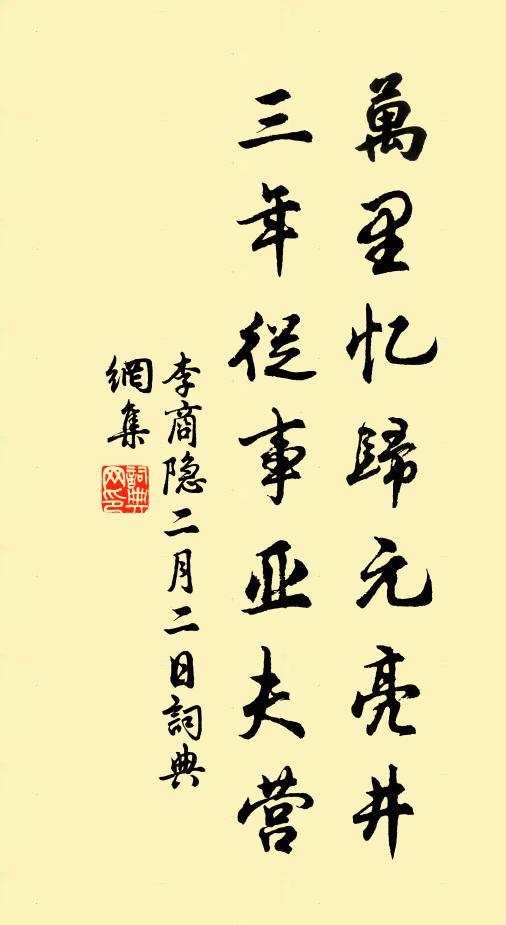 萬里忆歸元亮井
三年從事亚夫营
李商隐二月二日詞典
網集
詞典
网印